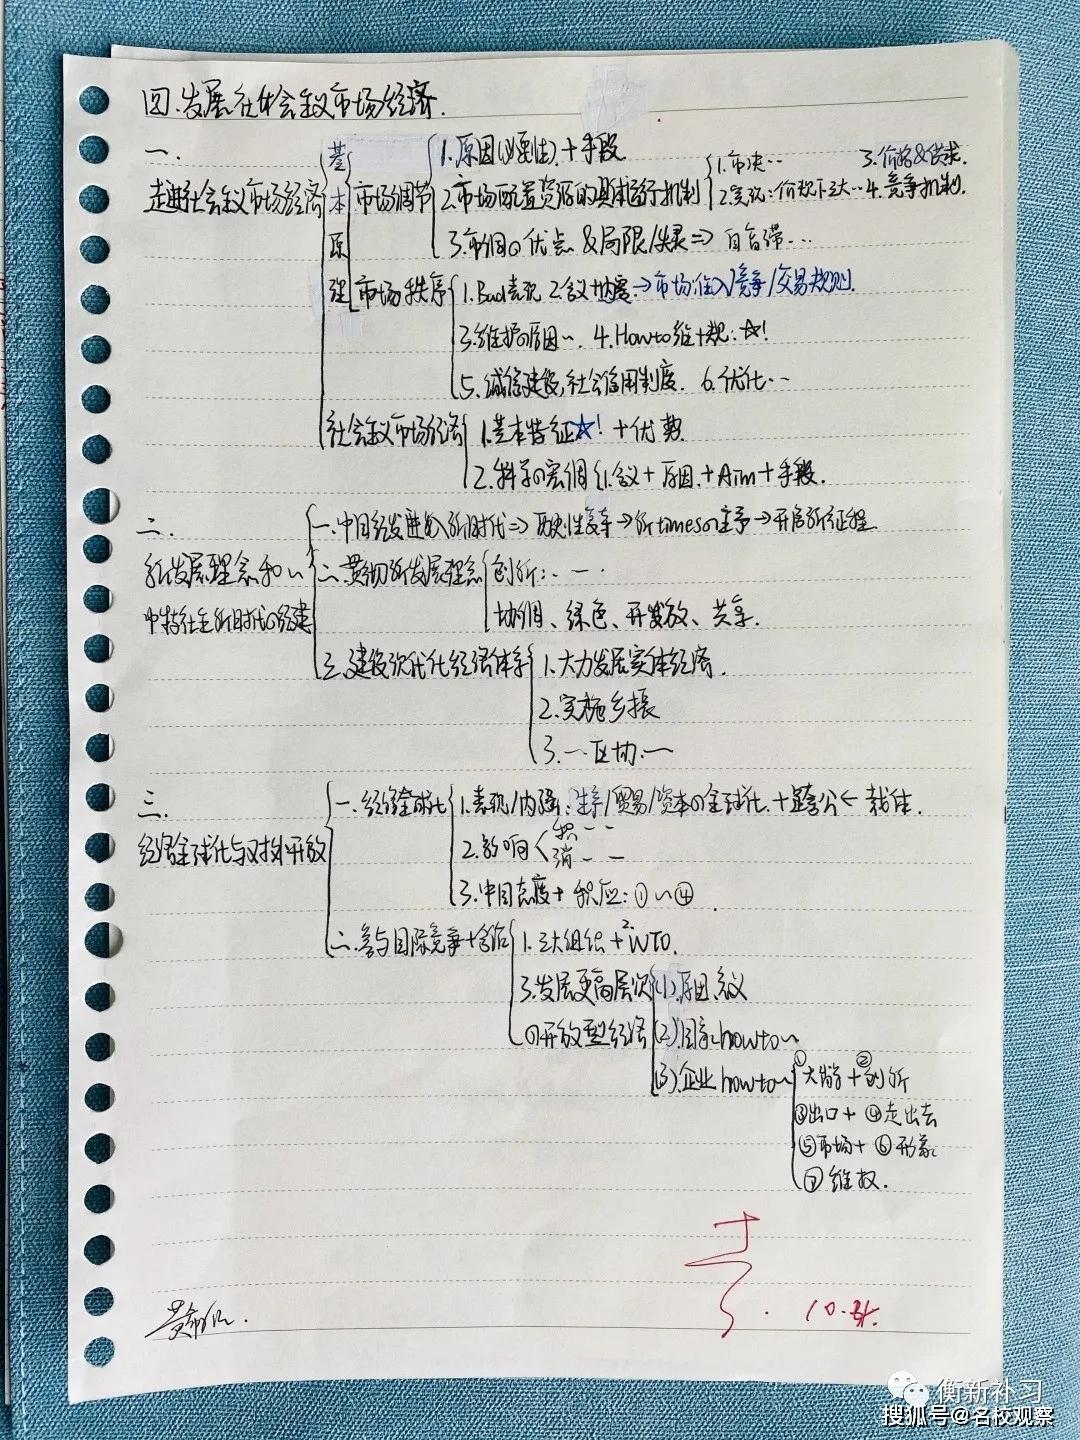 四.发展社会主义市场经济.
一.
走进社会主义市场经济
基本原理
市场调节
1.原因(必要性).+手段
2.市场配置资源的具体运行机制
1.市决··
2.实现:价积下达··
3.价格&供求.
4.竞争机制.
3.市调の优点&局限/失灵⇒自盲滞···
市场秩序
1.Bad表现 2.含义+地震→市场准入/竞争/交易规则.
3.维护の原因··. 4.How to 维+规:☆!
5.诚信建设,社会信用制度. 6.优化··
社会主义市场经济
1.基本特征☆!+优势.
2.科学の宏调 1.含义+原因.+Aim+手段.
二.
新发展理念和
中特社主新时代の经建
一.中国经发进入新时代⇒ →新timesの主矛→开启新征程
二.贯彻新发展理念
创新:·一·
协调、绿色、开发放、共享.
三.建设现代化经济体系
1.大力发展实体经济.
2.实施乡振
3.一·区协.一
三.
经济全球化与对外开放
一.经济全球化
1.表现/内涵:生产/贸易/资本の全球化.+跨公←载体.
2.影响
积 一 -
消 一 一
3.中国态度+积应:①~④.
二.参与国际竞争+合作
1.三大组织+²WTO.
3.发展更高层次の开放型经济
(1).原因、意义
(2).国家how to~
(3).企业how to~
①大脑+②创新
③出口+④走出去
⑤市场+⑥形象
⑦维权.
10.
衡新补习
搜狐号@名校观察